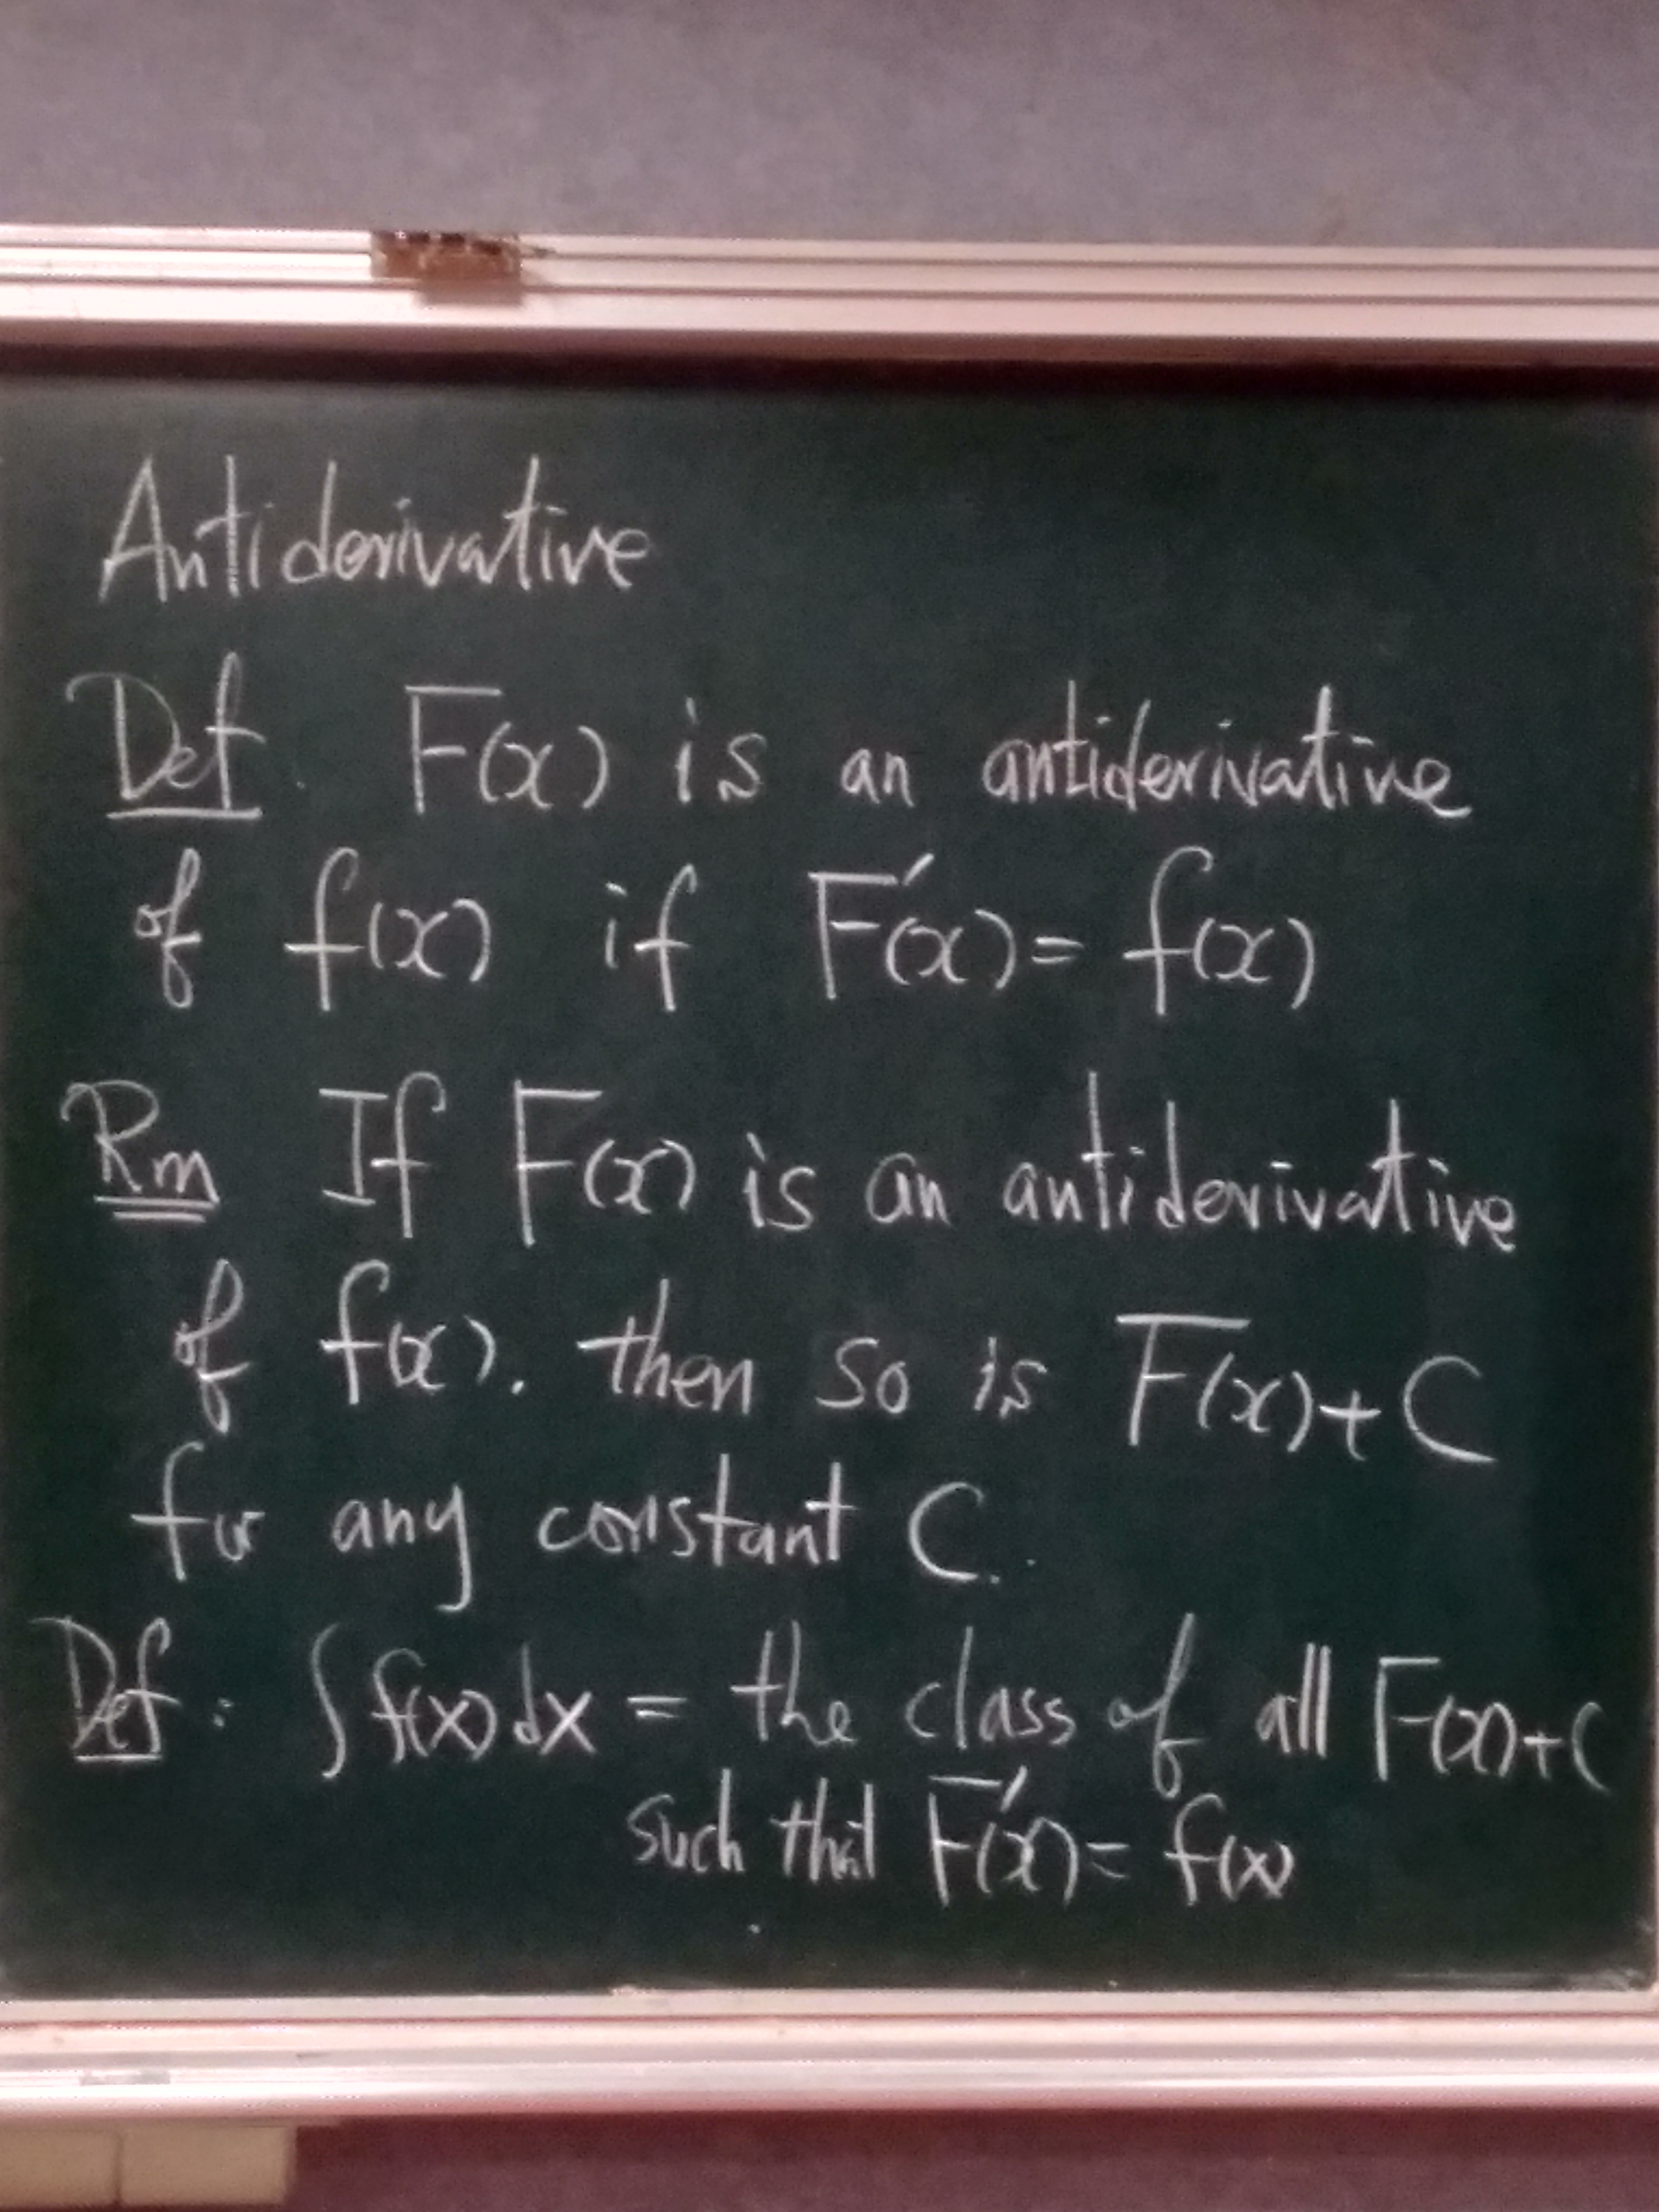 Antiderivative
Def. F(x) is an antiderivative
of f(x) if F'(x) = f(x)
Rm If F(x) is an antiderivative
of f(x). then so is F(x)+C
for any constant C.
Def: ∫f(x)dx = the class of all F(x)+C
such that F'(x) = f(x)